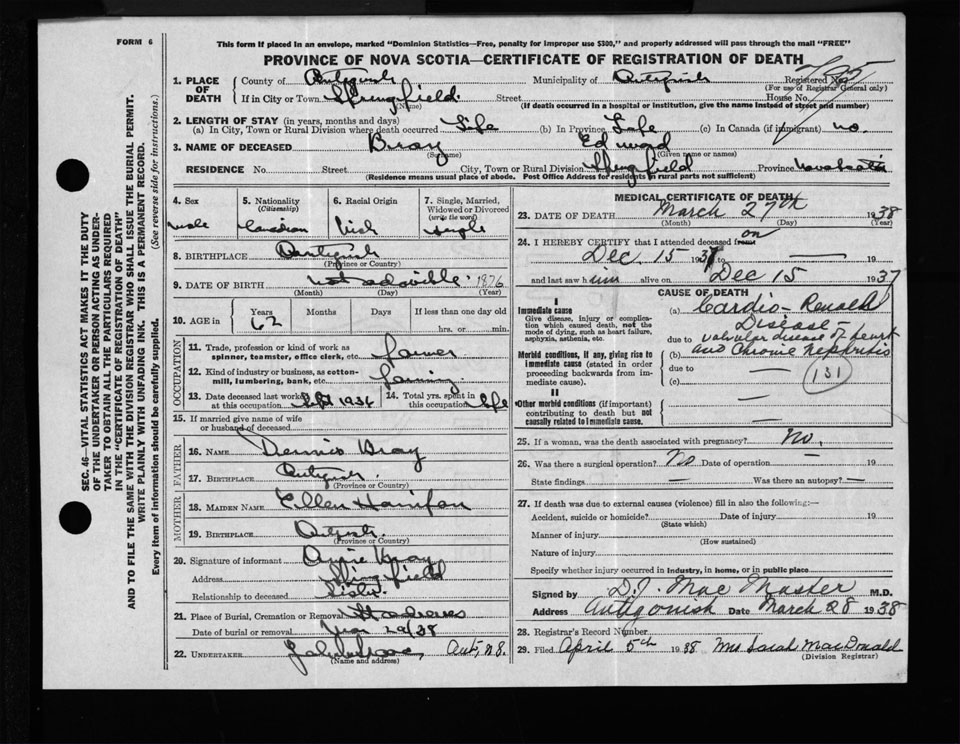 FORM 6
This form If placed In an envelope, marked "Dominion Statistics—Free, penalty for improper use $300," and properly addressed will pass through the mail "FREE"
PROVINCE OF NOVA SCOTIA—CERTIFICATE OF REGISTRATION OF DEATH
1. PLACE OF DEATH
County of Antigonish Municipality of Antigonish Registered No.
(For use of Registrar General only)
If in City or Town Springfield Street House No.
(Name) (If death occurred in a hospital or institution, give the name instead of street and number)
2. LENGTH OF STAY (in years, months and days)
(a) In City, Town or Rural Division where death occurred Life (b) In Province Life (c) In Canada (if immigrant) no.
3. NAME OF DECEASED Bray Edward
(Surname) (Given name or names)
RESIDENCE No. Street City, Town or Rural Division Springfield Province Nova Scotia
(Residence means usual place of abode. Post Office Address for residents in rural parts not sufficient)
4. Sex
male
5. Nationality
(Citizenship)
Canadian
6. Racial Origin
Irish
7. Single, Married, Widowed or Divorced
(write the word)
single
8. BIRTHPLACE Antigonish
(Province or Country)
9. DATE OF BIRTH not 1876
(Month) (Day) (Year)
10. AGE in Years Months Days If less than one day old
62 hrs. or min.
OCCUPATION
11. Trade, profession or kind of work as spinner, teamster, office clerk, etc. farmer
12. Kind of industry or business, as cotton-mill, lumbering, bank, etc. farming
13. Date deceased last worked at this occupation Sept 1936
14. Total yrs. spent in this occupation Life
15. If married give name of wife or husband of deceased
FATHER
16. NAME Dennis Bray
17. BIRTHPLACE Antigonish
(Province or Country)
MOTHER
18. MAIDEN NAME Ellen Hanifen
19. BIRTHPLACE Antigonish
(Province or Country)
20. Signature of informant Annie Bray
Address Springfield
Relationship to deceased Sister
21. Place of Burial, Cremation or Removal St Andrews
Date of burial or removal 29/38
22. UNDERTAKER Ant, N.S.
(Name and address)
MEDICAL CERTIFICATE OF DEATH
23. DATE OF DEATH March 27th 1938
(Month) (Day)
24. I HEREBY CERTIFY that I attended deceased from on
Dec. 15 1937 to — 19
and last saw him alive on Dec 15 1937
CAUSE OF DEATH
I
Immediate cause
Give disease, injury or complication which caused death, not the mode of dying, such as heart failure, asphyxia, asthenia, etc.
(a) Cardio-Renal Disease —
due to valvular disease of heart
Morbid conditions, if any, giving rise to immediate cause (stated in order proceeding backwards from immediate cause).
(b) and Chronic Nephritis
due to — (131)
(c)
II
Other morbid conditions (if important) contributing to death but not causally related to immediate cause.
25. If a woman, was the death associated with pregnancy? No.
26. Was there a surgical operation? No Date of operation — 19
State findings — Was there an autopsy? —
27. If death was due to external causes (violence) fill in also the following:—
Accident, suicide or homicide? Date of injury 19
(State which)
Manner of injury
(How sustained)
Nature of injury
Specify whether injury occurred in industry, in home, or in public place
Signed by D.J. MacMaster M.D.
Address Antigonish Date March 28 1938
28. Registrar's Record Number
29. Filed April 5th 1938 Mrs Sarah MacDonald
(Division Registrar)
SEC. 46—VITAL STATISTICS ACT MAKES IT THE DUTY
OF THE UNDERTAKER OR PERSON ACTING AS UNDER-
TAKER TO OBTAIN ALL THE PARTICULARS REQUIRED
IN THE "CERTIFICATE OF REGISTRATION OF DEATH"
AND TO FILE THE SAME WITH THE DIVISION REGISTRAR WHO SHALL ISSUE THE BURIAL PERMIT.
WRITE PLAINLY WITH UNFADING INK. THIS IS A PERMANENT RECORD.
Every item of information should be carefully supplied. (See reverse side for instructions.)